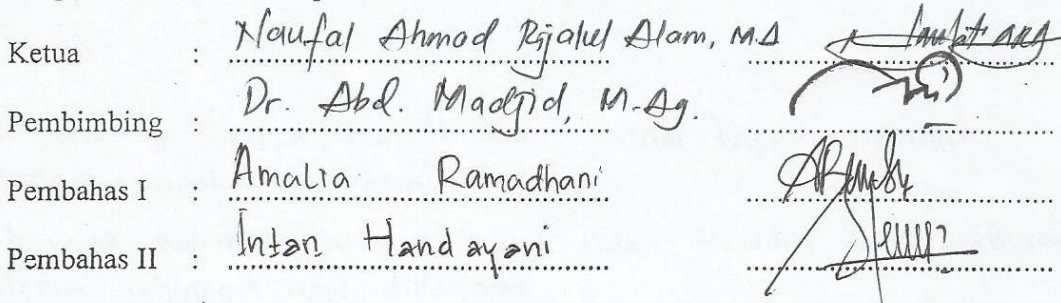 Ketua : Naufal Ahmad Rijalul Alam, M.A
Pembimbing : Dr. Abd. Madjid, M.Ag.
Pembahas I : Amalia Ramadhani
Pembahas II : Intan Handayani